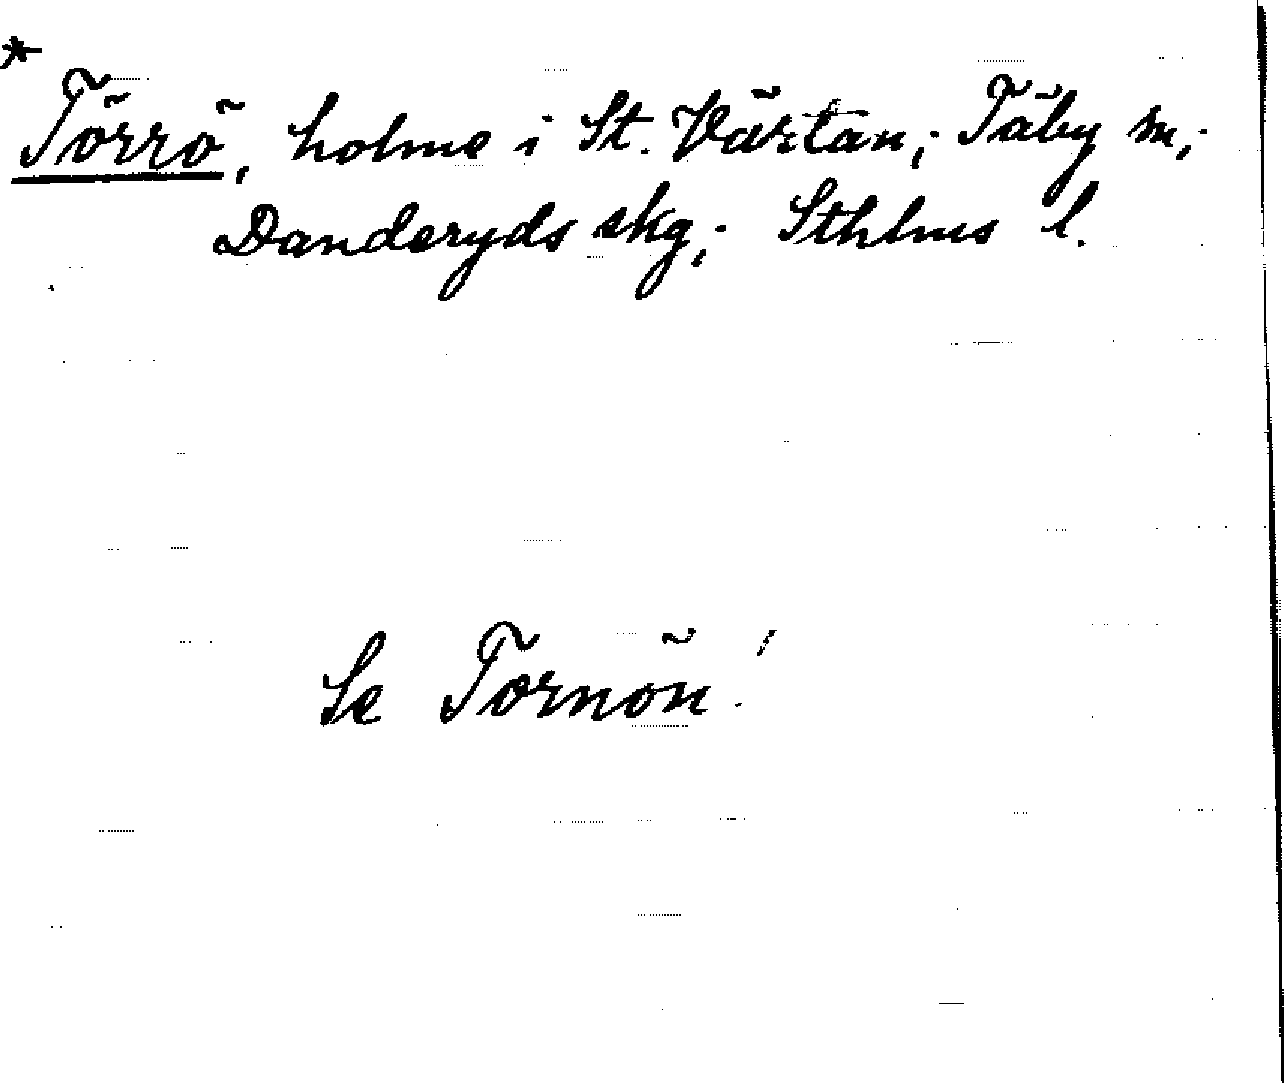 * Törrö, holme i St. Värtan, Täby sn,
Danderyds skg, Sthlms l.
Se Tornön!